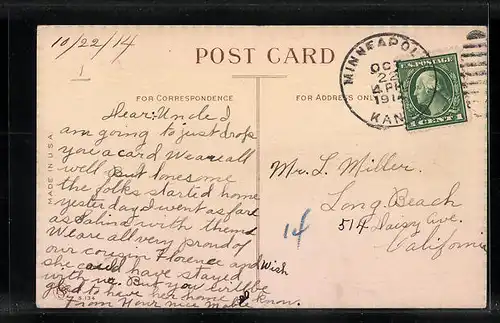 10/22/14
POST CARD
MINNEAPOLIS
OCT
22
4 PM
1914
KAN
U.S. POSTAGE
1 CENT 1
FOR CORRESPONDENCE
FOR ADDRESS ONLY
MADE IN U.S.A.
Dear Uncle I
am going to just drop
you a card We are all
well But lonesome
the folks started home
yesterday I went as far
as Salina with them
We are all very proud of
our cousin Florence and wish
she could have stayed
with us. But you will be
glad to have her home I know.
From Your niece
S. 134
Mr. L. Miller.
Long Beach
514 Daisy Ave.
California
14